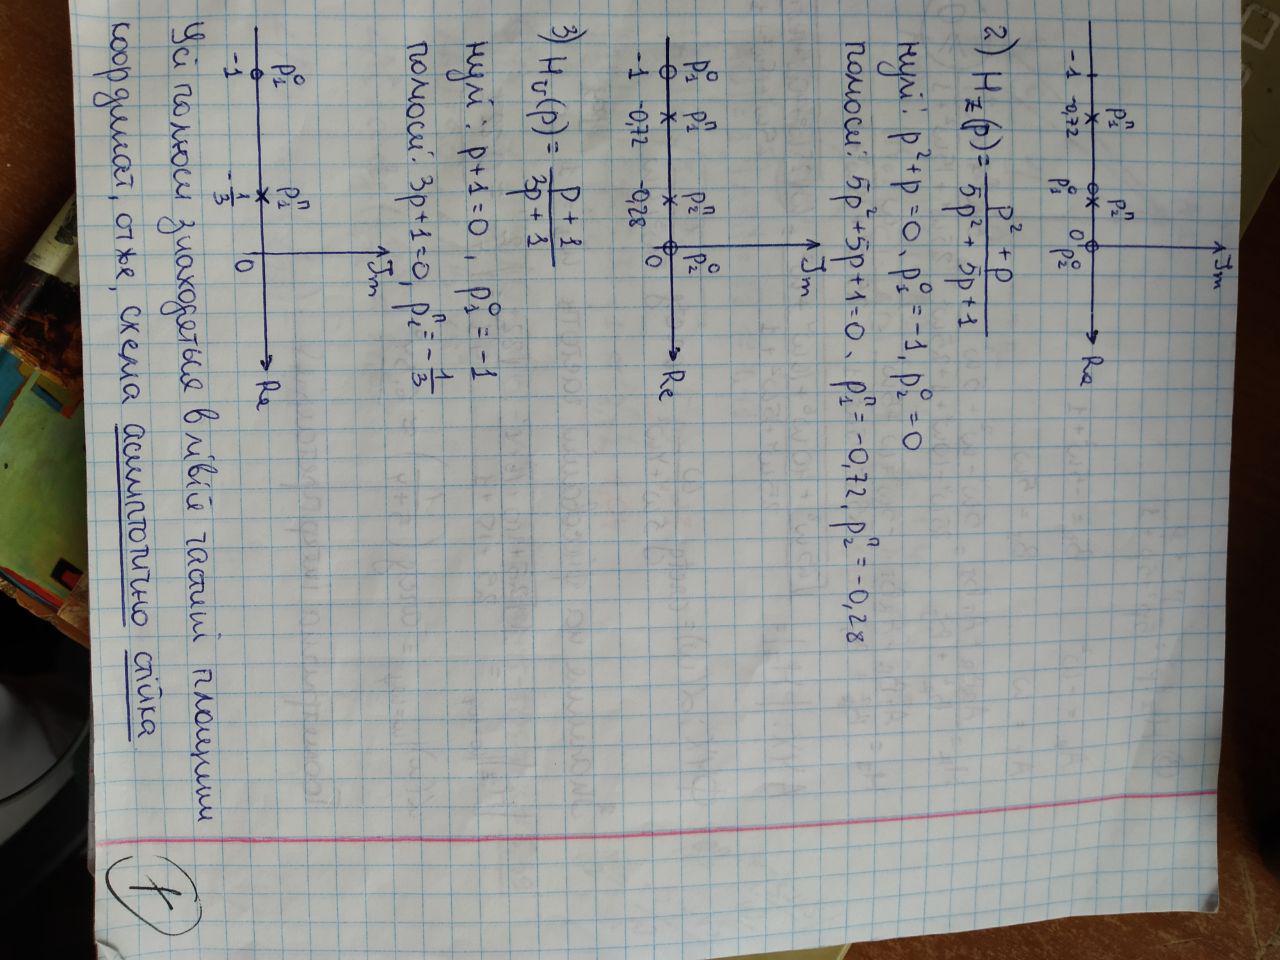 Jm
p₁ᴨ p₂ᴨ
Re
-1 -0,72 p₁⁰ 0 p₂⁰
2) H_Z(p) = (p² + p)/(5p² + 5p + 1)
нулі: p² + p = 0, p₁⁰ = -1, p₂⁰ = 0
полюси: 5p² + 5p + 1 = 0, p₁ᴨ = -0,72, p₂ᴨ = -0,28
Jm
p₁⁰ p₁ᴨ p₂ᴨ p₂⁰
Re
-1 -0,72 -0,28 0
3) H_U(p) = (p + 1)/(3p + 1)
нулі: p + 1 = 0, p₁⁰ = -1
полюси: 3p + 1 = 0, p₁ᴨ = -1/3
Jm
p₁⁰ p₁ᴨ
Re
-1 -1/3 0
Усі полюси знаходяться в лівій частині площини
координат, отже, схема асимптотично стійка